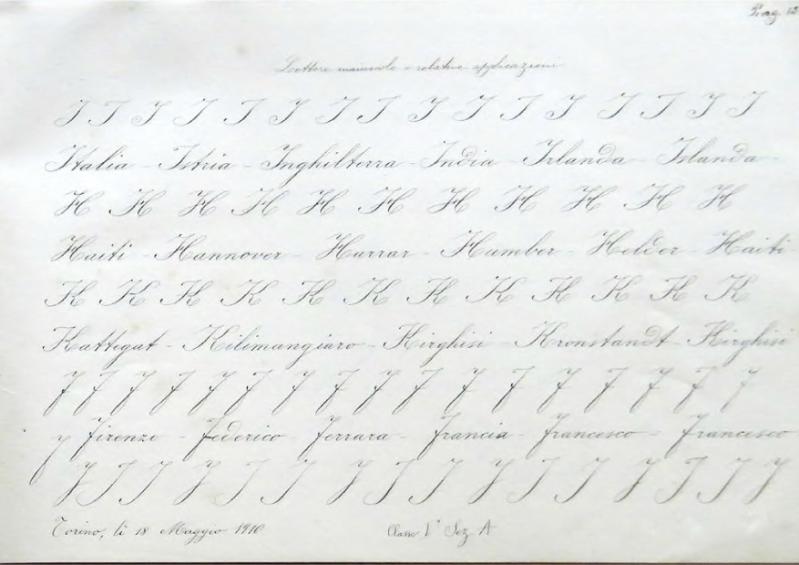 Pag. 12
Lettere maiuscole e relative applicazioni
I I I I I I I I I I I I I I I I
Italia - Istria - Inghilterra - India - Irlanda - Islanda -
H H H H H H H H H H H
Haiti - Hannover - Hurrar - Humber - Helder - Haiti
K K K K K K K K K K K K
Kattegat - Kilimangiaro - Kirghisi - Kronstandt - Kirghisi
F F F F F F F F F F F F F F F F F
Firenze - Federico - Ferrara - Francia - Francesco - Francesco
J J J J J J J J J J J J J J J J J
Torino, li 18 Maggio 1910 Classe 1ª Sez. A